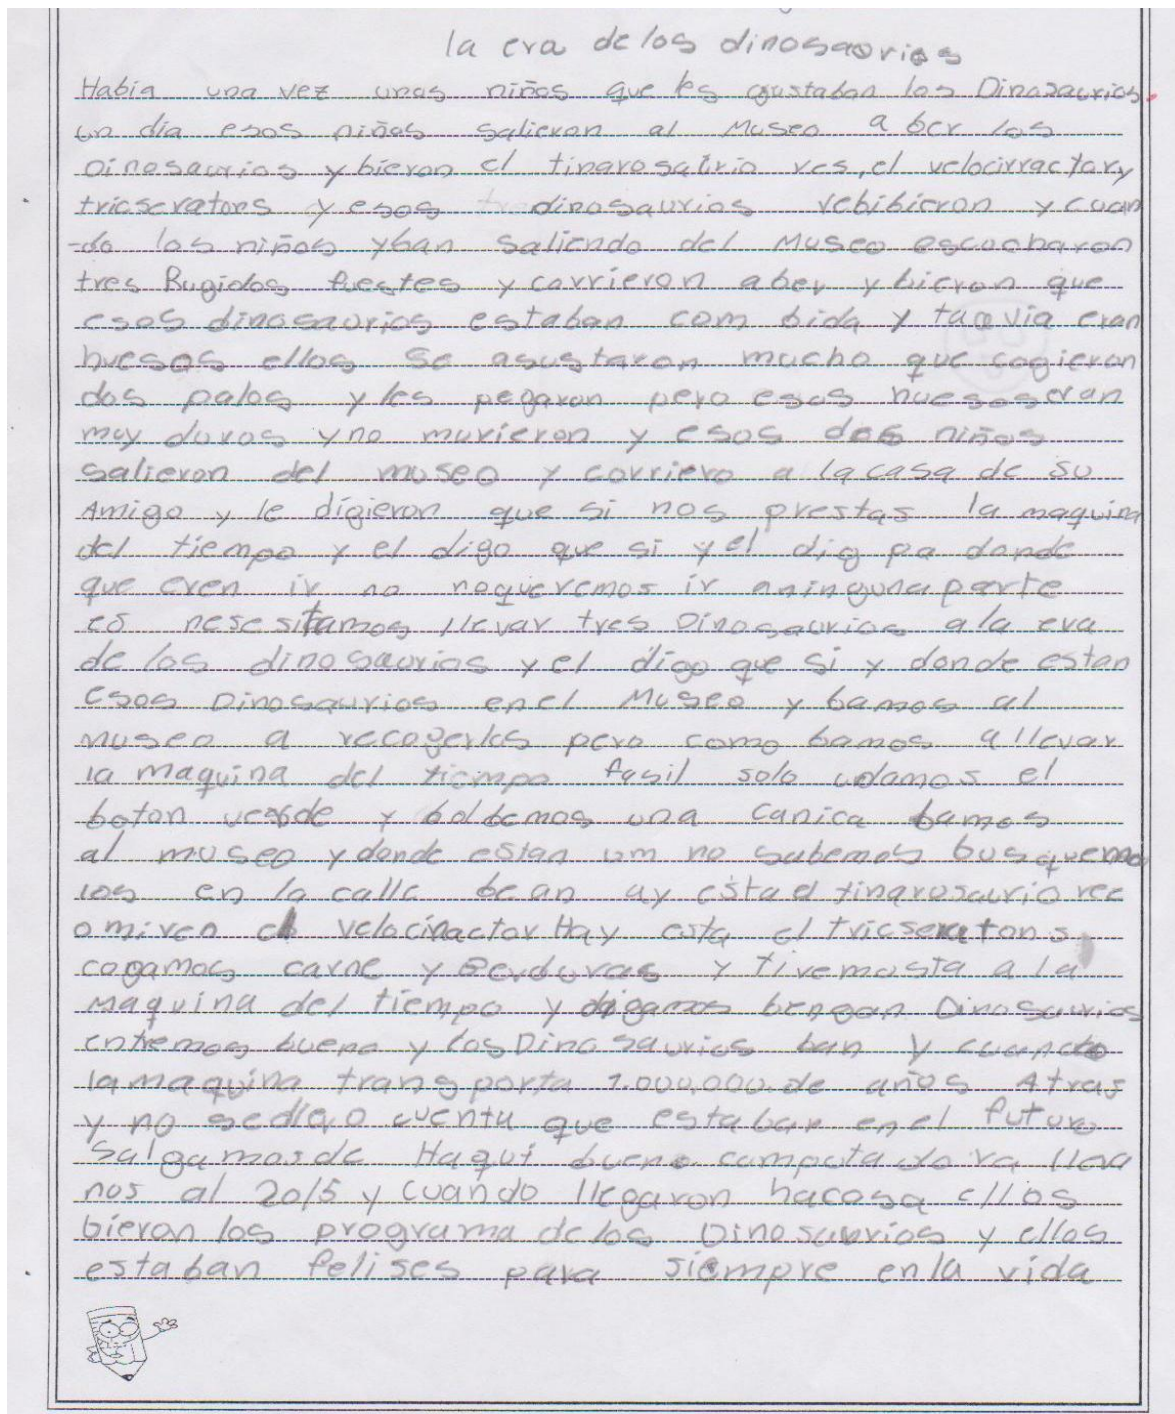 la era de los dinosaurios
Habia una vez unos niños que les gustaban los Dinosaurios.
un dia esos niños salieron al Museo a ber los
Dinosaurios y bieron el tinarosaurio res, el velocirractor y
tricseratons y esos dinosaurios rebibieron y cuan
-do los niños yban saliendo del Museo escucharon
tres Rugidos fuestes y corrieron aber y bieron que
esos dinosaurios estaban com bida y tuavia eran
huesos ellos Se asustaron mucho que cogieron
dos palos y les pegaron pero esos huesos eran
muy duros y no murieron y esos dos niños
salieron del museo y corriero a la casa de su
Amigo y le digieron que si nos prestas la maquina
del tiempo y el digo que si y el dig pa donde
que eren ir no noqueremos ir aninguna parte
es nesesitamos llevar tres Dinosaurios ala era
de los dinosaurios y el digo que si y donde estan
esos Dinosaurios en el Museo y bamos al
museo a recogerlos pero como bamos a llevar
la maquina del tiempo fasil solo undamos el
boton verde y bolbemos una canica bamos
al museo y donde estan um no sabemos busquemo
los en la calle bean ay esta el tinarosaurio rec
o miren el velocinactor Hay esta el tricseratons
cogamos carne y Berduras y tiremosta a la
Maquina del tiempo y digamos bengan Dinosaurios
entremos bueno y los Dinosaurios ban y cuando
la maquina transporta 1.000,000 de años Atras
y no sediero cuenta que estabar en el futuro
Salgamos de Haqui bueno computadora lleva
nos al 2015 y cuando llegaron hacasa ellos
bieron los programa de los Dinosaurios y ellos
estaban felises para siempre en la vida